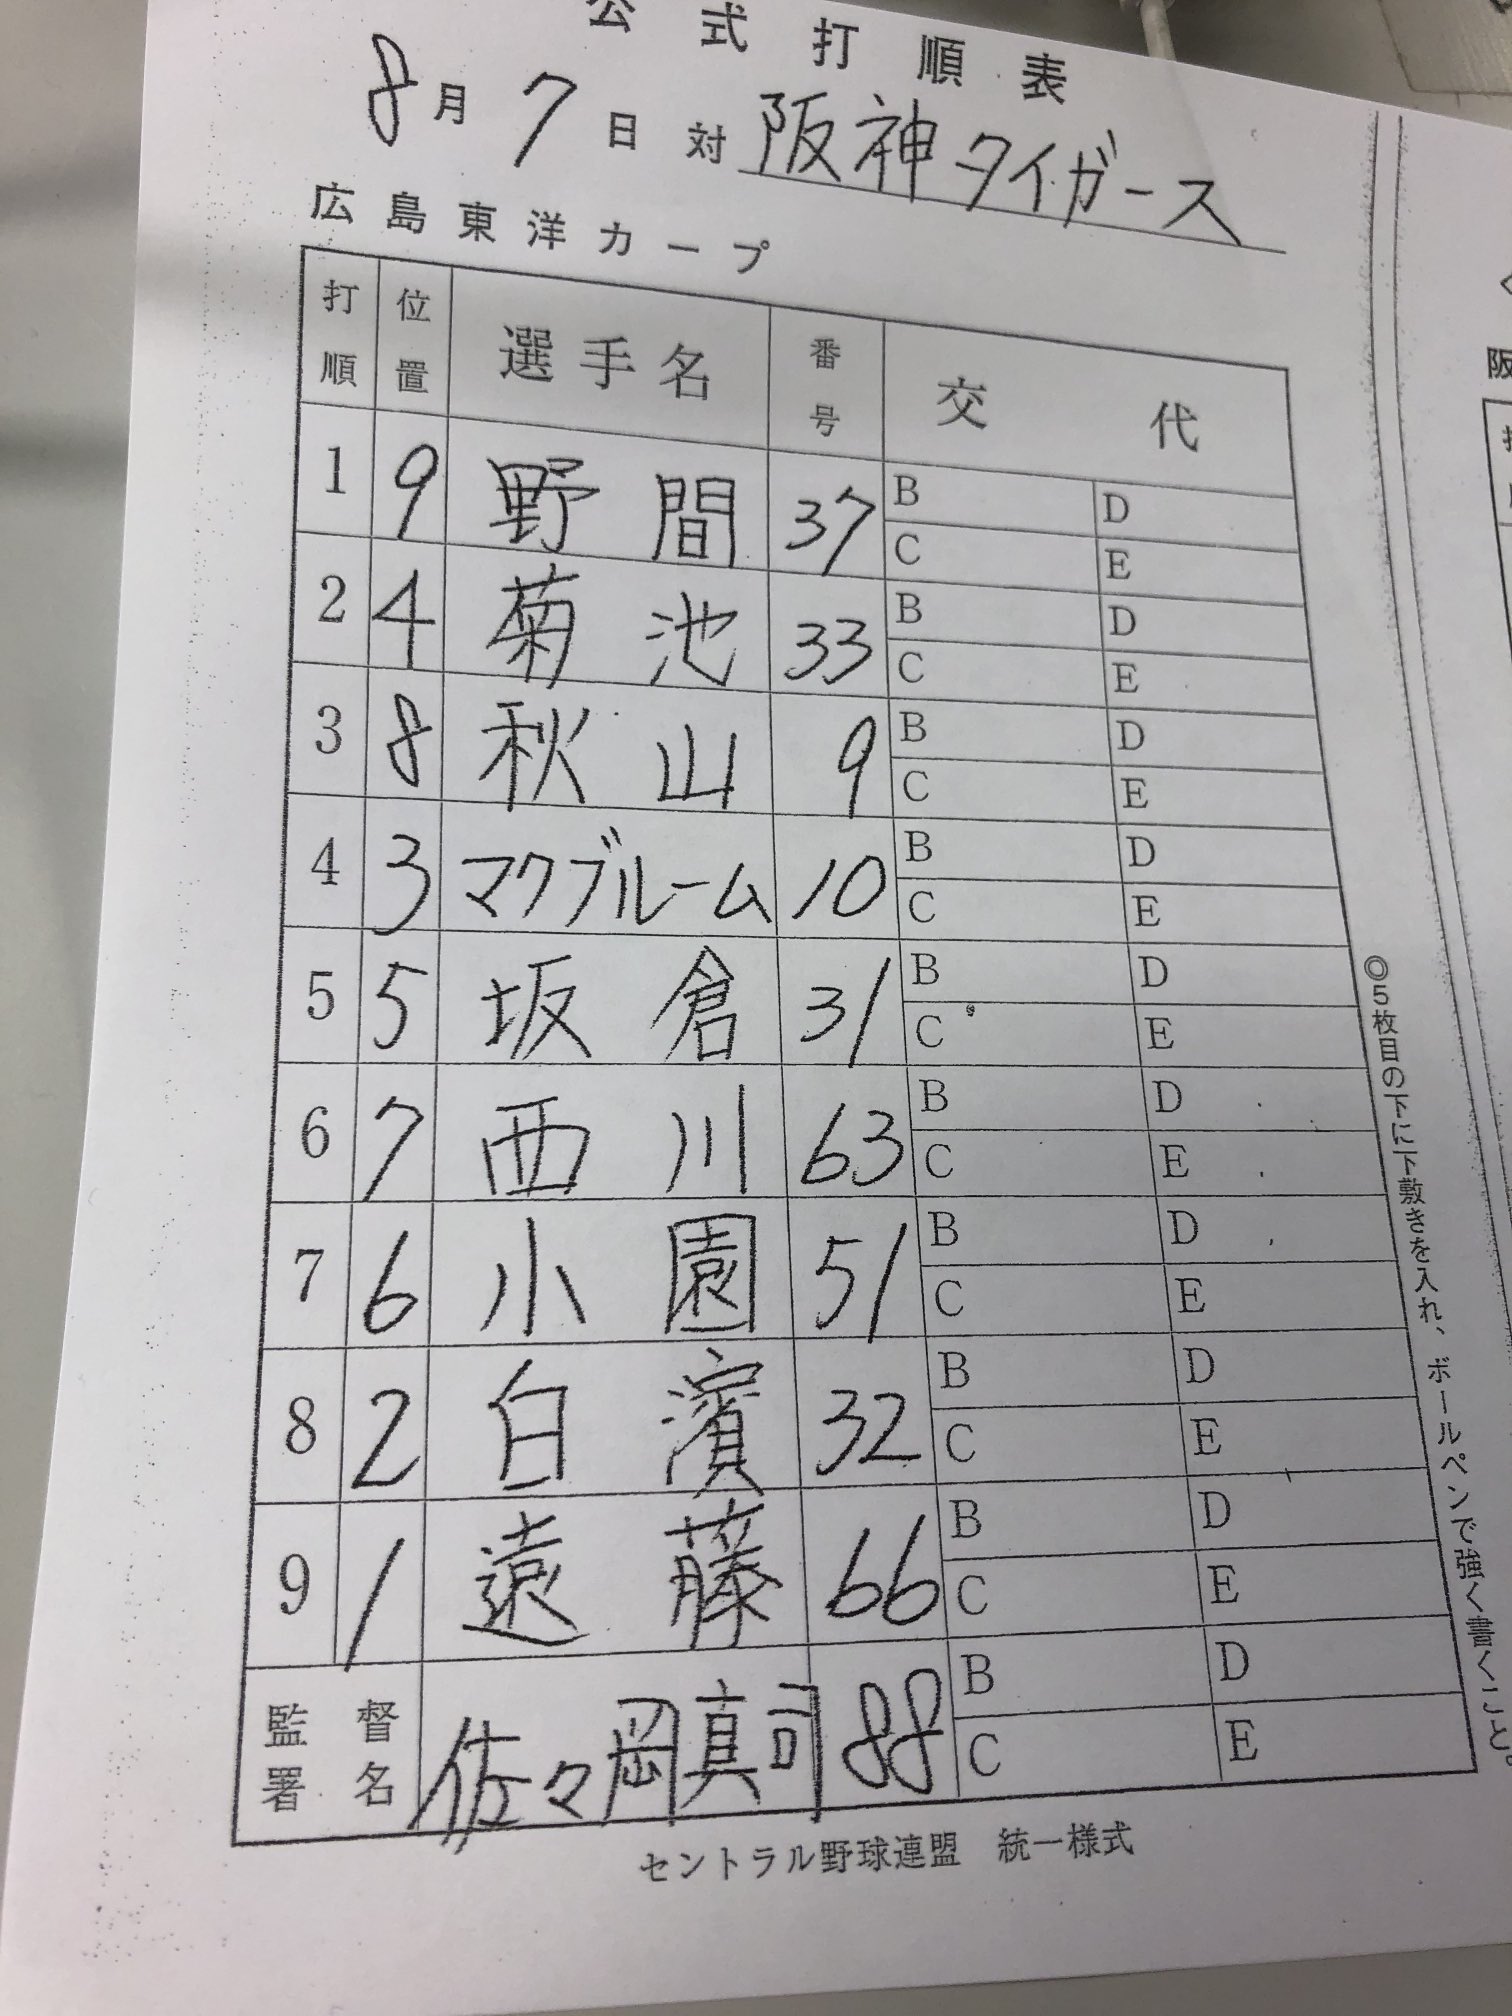 公式打順表
8月7日対阪神タイガース
広島東洋カープ
打順 位置 選手名 番号 交代
1 9 野間 37 B D
C E
2 4 菊池 33 B D
C E
3 8 秋山 9 B D
C E
4 3 マクブルーム 10 B D
C E
5 5 坂倉 31 B D
C E
6 7 西川 63 B D
C E
7 6 小園 51 B D
C E
8 2 白濱 32 B D
C E
9 1 遠藤 66 B D
C E
監督署名 佐々岡真司 88 B D
C E
セントラル野球連盟 統一様式
◎5枚目の下に下敷きを入れ、ボールペンで強く書くこと。
阪